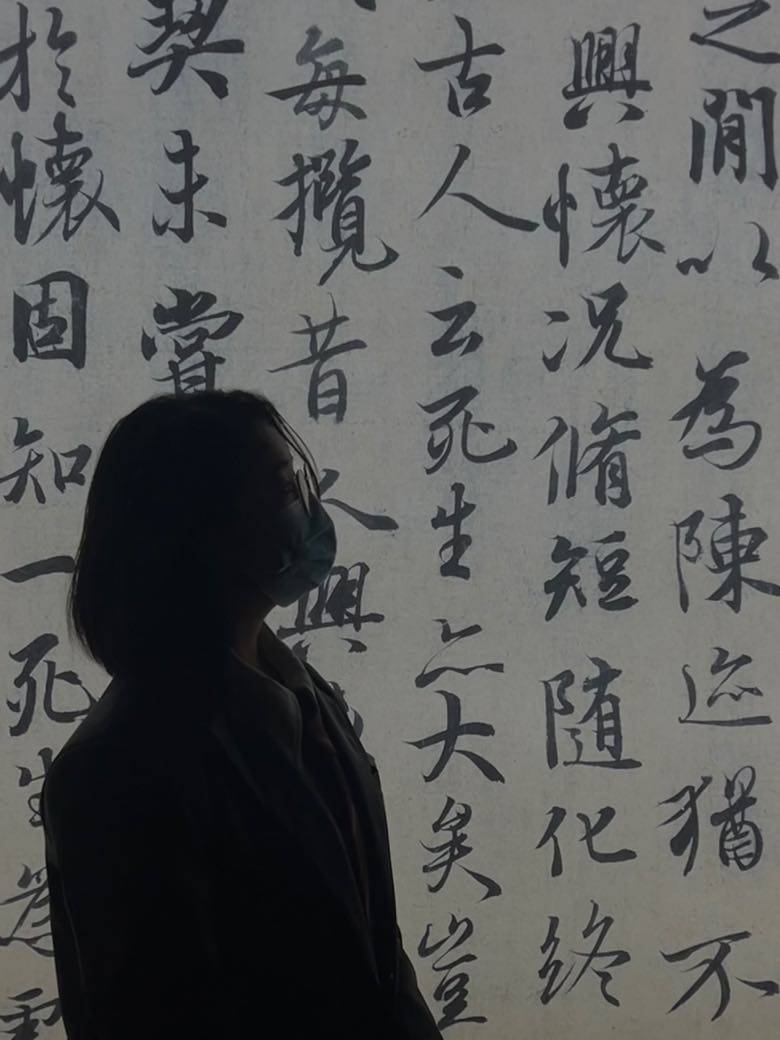 之間以為陳迹猶不
興懷况脩短随化終
古人云死生亦大矣豈
每攬昔人興
契未嘗
於懷固知一死生為